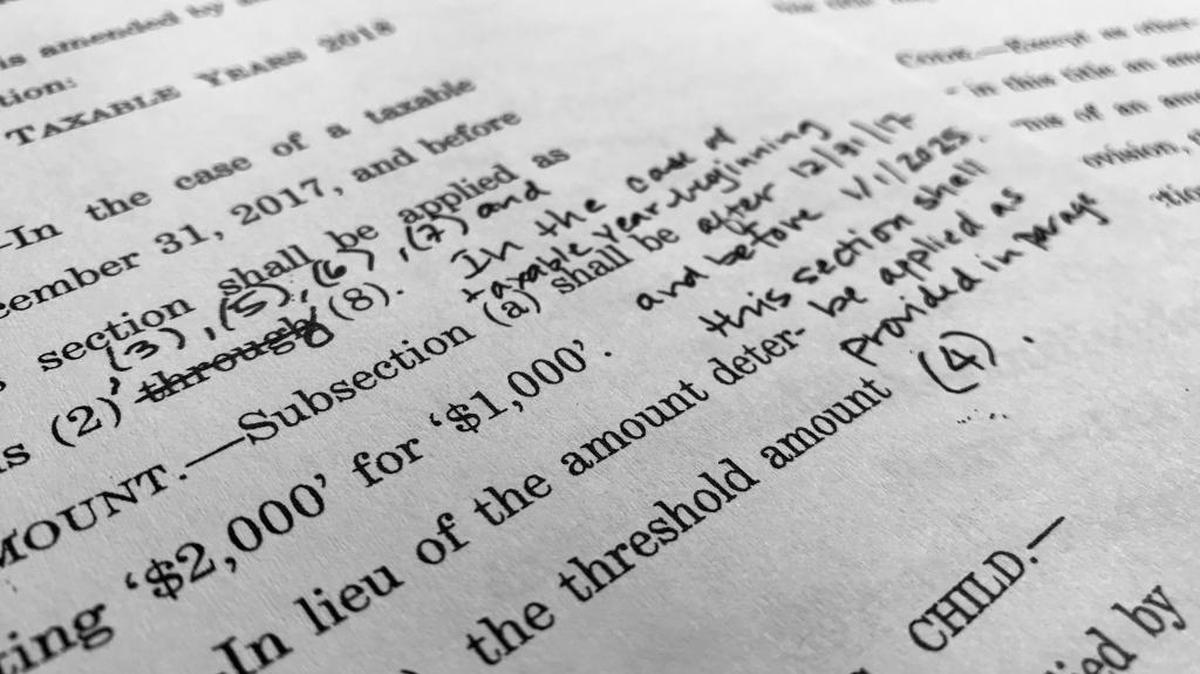 is amended by
tion:
TAXABLE YEARS 2018
—In the case of a taxable
cember 31, 2017, and before
section shall be applied as
(3), (5), (6), (7) and
s (2) through (8).
In the case of
taxable year beginning
after 12/31/17
and before 1/1/2025.
this section shall
be applied as
provided in parage
(4).
MOUNT.—Subsection (a) shall be
ting ‘$2,000’ for ‘$1,000’.
In lieu of the amount deter-
the threshold amount
CHILD.—
ied by
CODE.—Except as other
in this title an
of an
ovision,